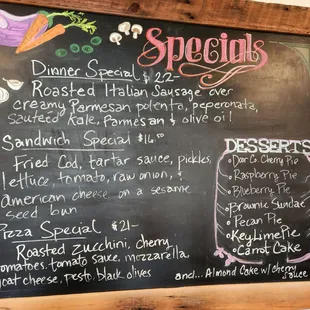 Specials
Dinner Special $22-
Roasted Italian Sausage over
creamy Parmesan polenta, peperonata,
sauteed kale, Parmesan & olive oil
Sandwich Special $16.50
Fried Cod, tartar sauce, pickles,
lettuce, tomato, raw onion, &
american cheese on a sesame
seed bun
Pizza Special $21-
Roasted zucchini, cherry
tomatoes, tomato sauce, mozzarella,
goat cheese, pesto, black olives
DESSERTS
• Door Co Cherry Pie
• Raspberry Pie
• Blueberry Pie
• Brownie Sundae
• Pecan Pie
• Key Lime Pie
• Carrot Cake
and... Almond Cake w/ Cherry
Sauce